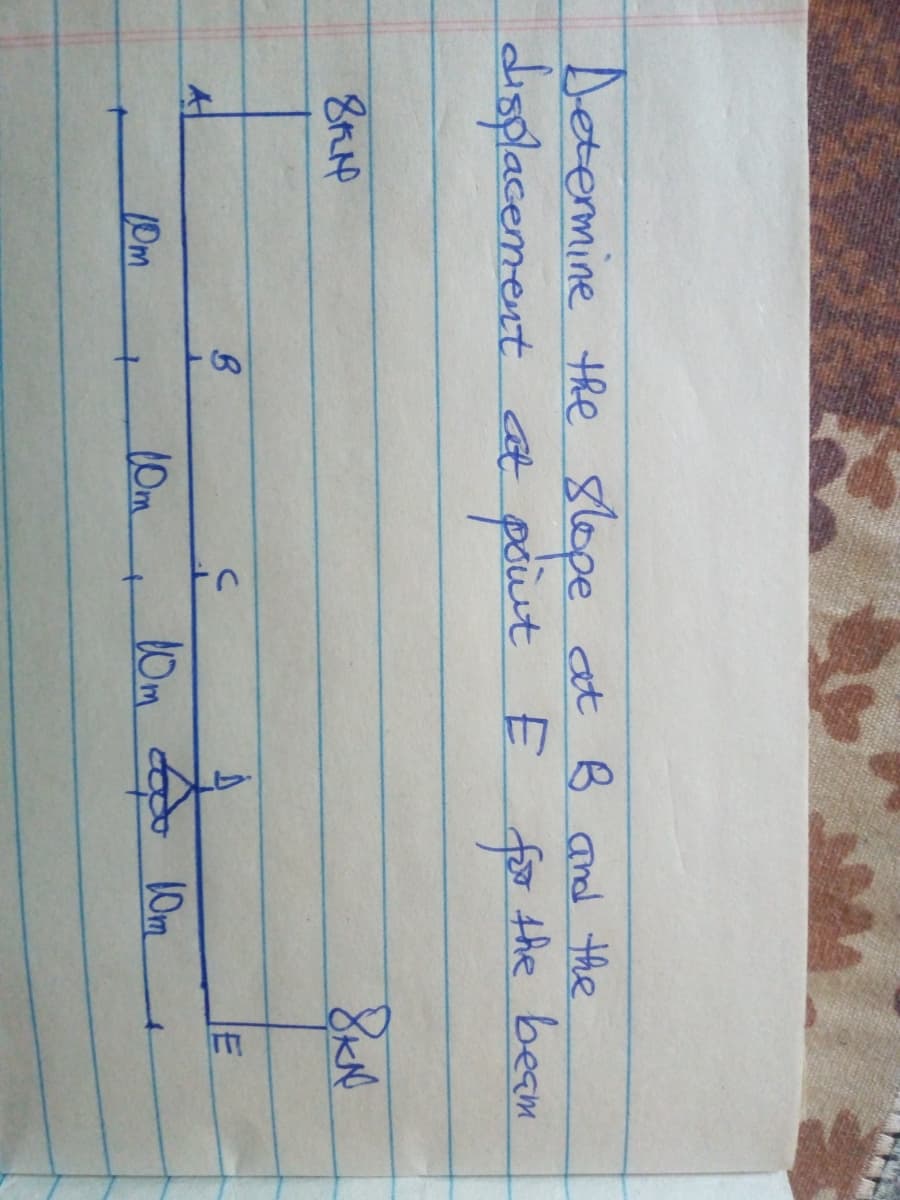 Determine the Slope at B and the
displacement at point E for the beam
8KN 8KN
A B C D E
10m 10m 10m 10m